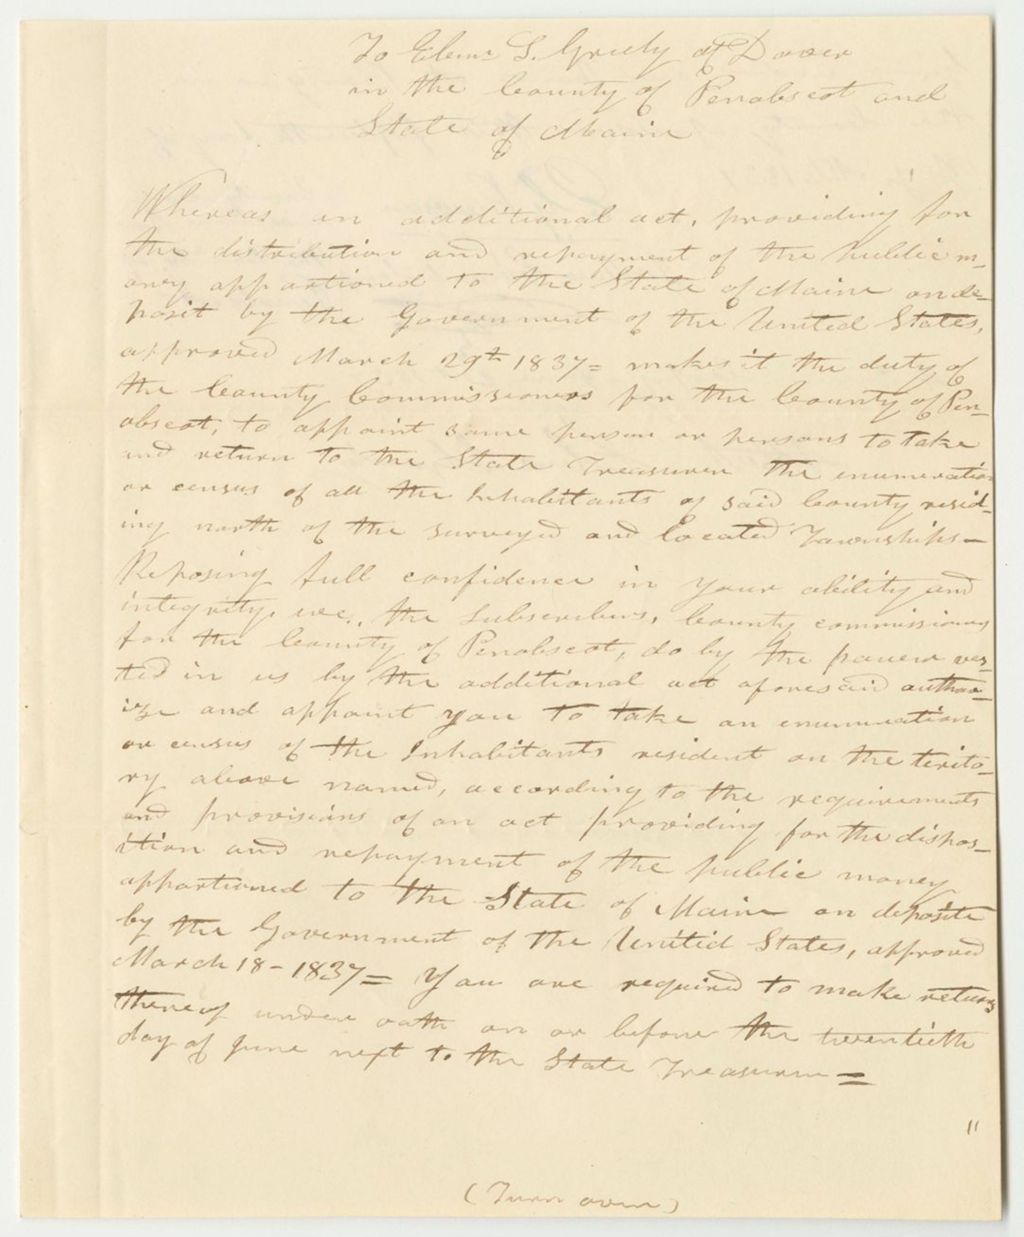 To Ebenr S. Greely of Dover
in the County of Penobscot and
State of Maine
Whereas an additional act, providing for
the distribution and repayment of the public m-
oney apportioned to the State of Maine on de-
posit by the Government of the United States,
approved March 29th 1837= makes it the duty of
the County Commissioners for the County of Pen-
obscot, to appoint some person or persons to take
and return to the State Treasurer the enumeration
or census of all the Inhabitants of said County resid-
ing north of the surveyed and located Townships-
Reposing full confidence in your ability and
integrity, we, the subscribers, County commissioners
for the County of Penobscot, do by the power ves-
ted in us by the additional act aforesaid author-
ize and appoint you to take an enumeration
or census of the Inhabitants resident on the terito-
ry above named, according to the requirements
and provisions of an act providing for the dispos-
ition and repayment of the public money
apportioned to the State of Maine on deposite
by the Government of the United States, approved
March 18-1837= You are required to make return
thereof under oath on or before the twentieth
day of June next to the State Treasurer=
"
(Turn over)